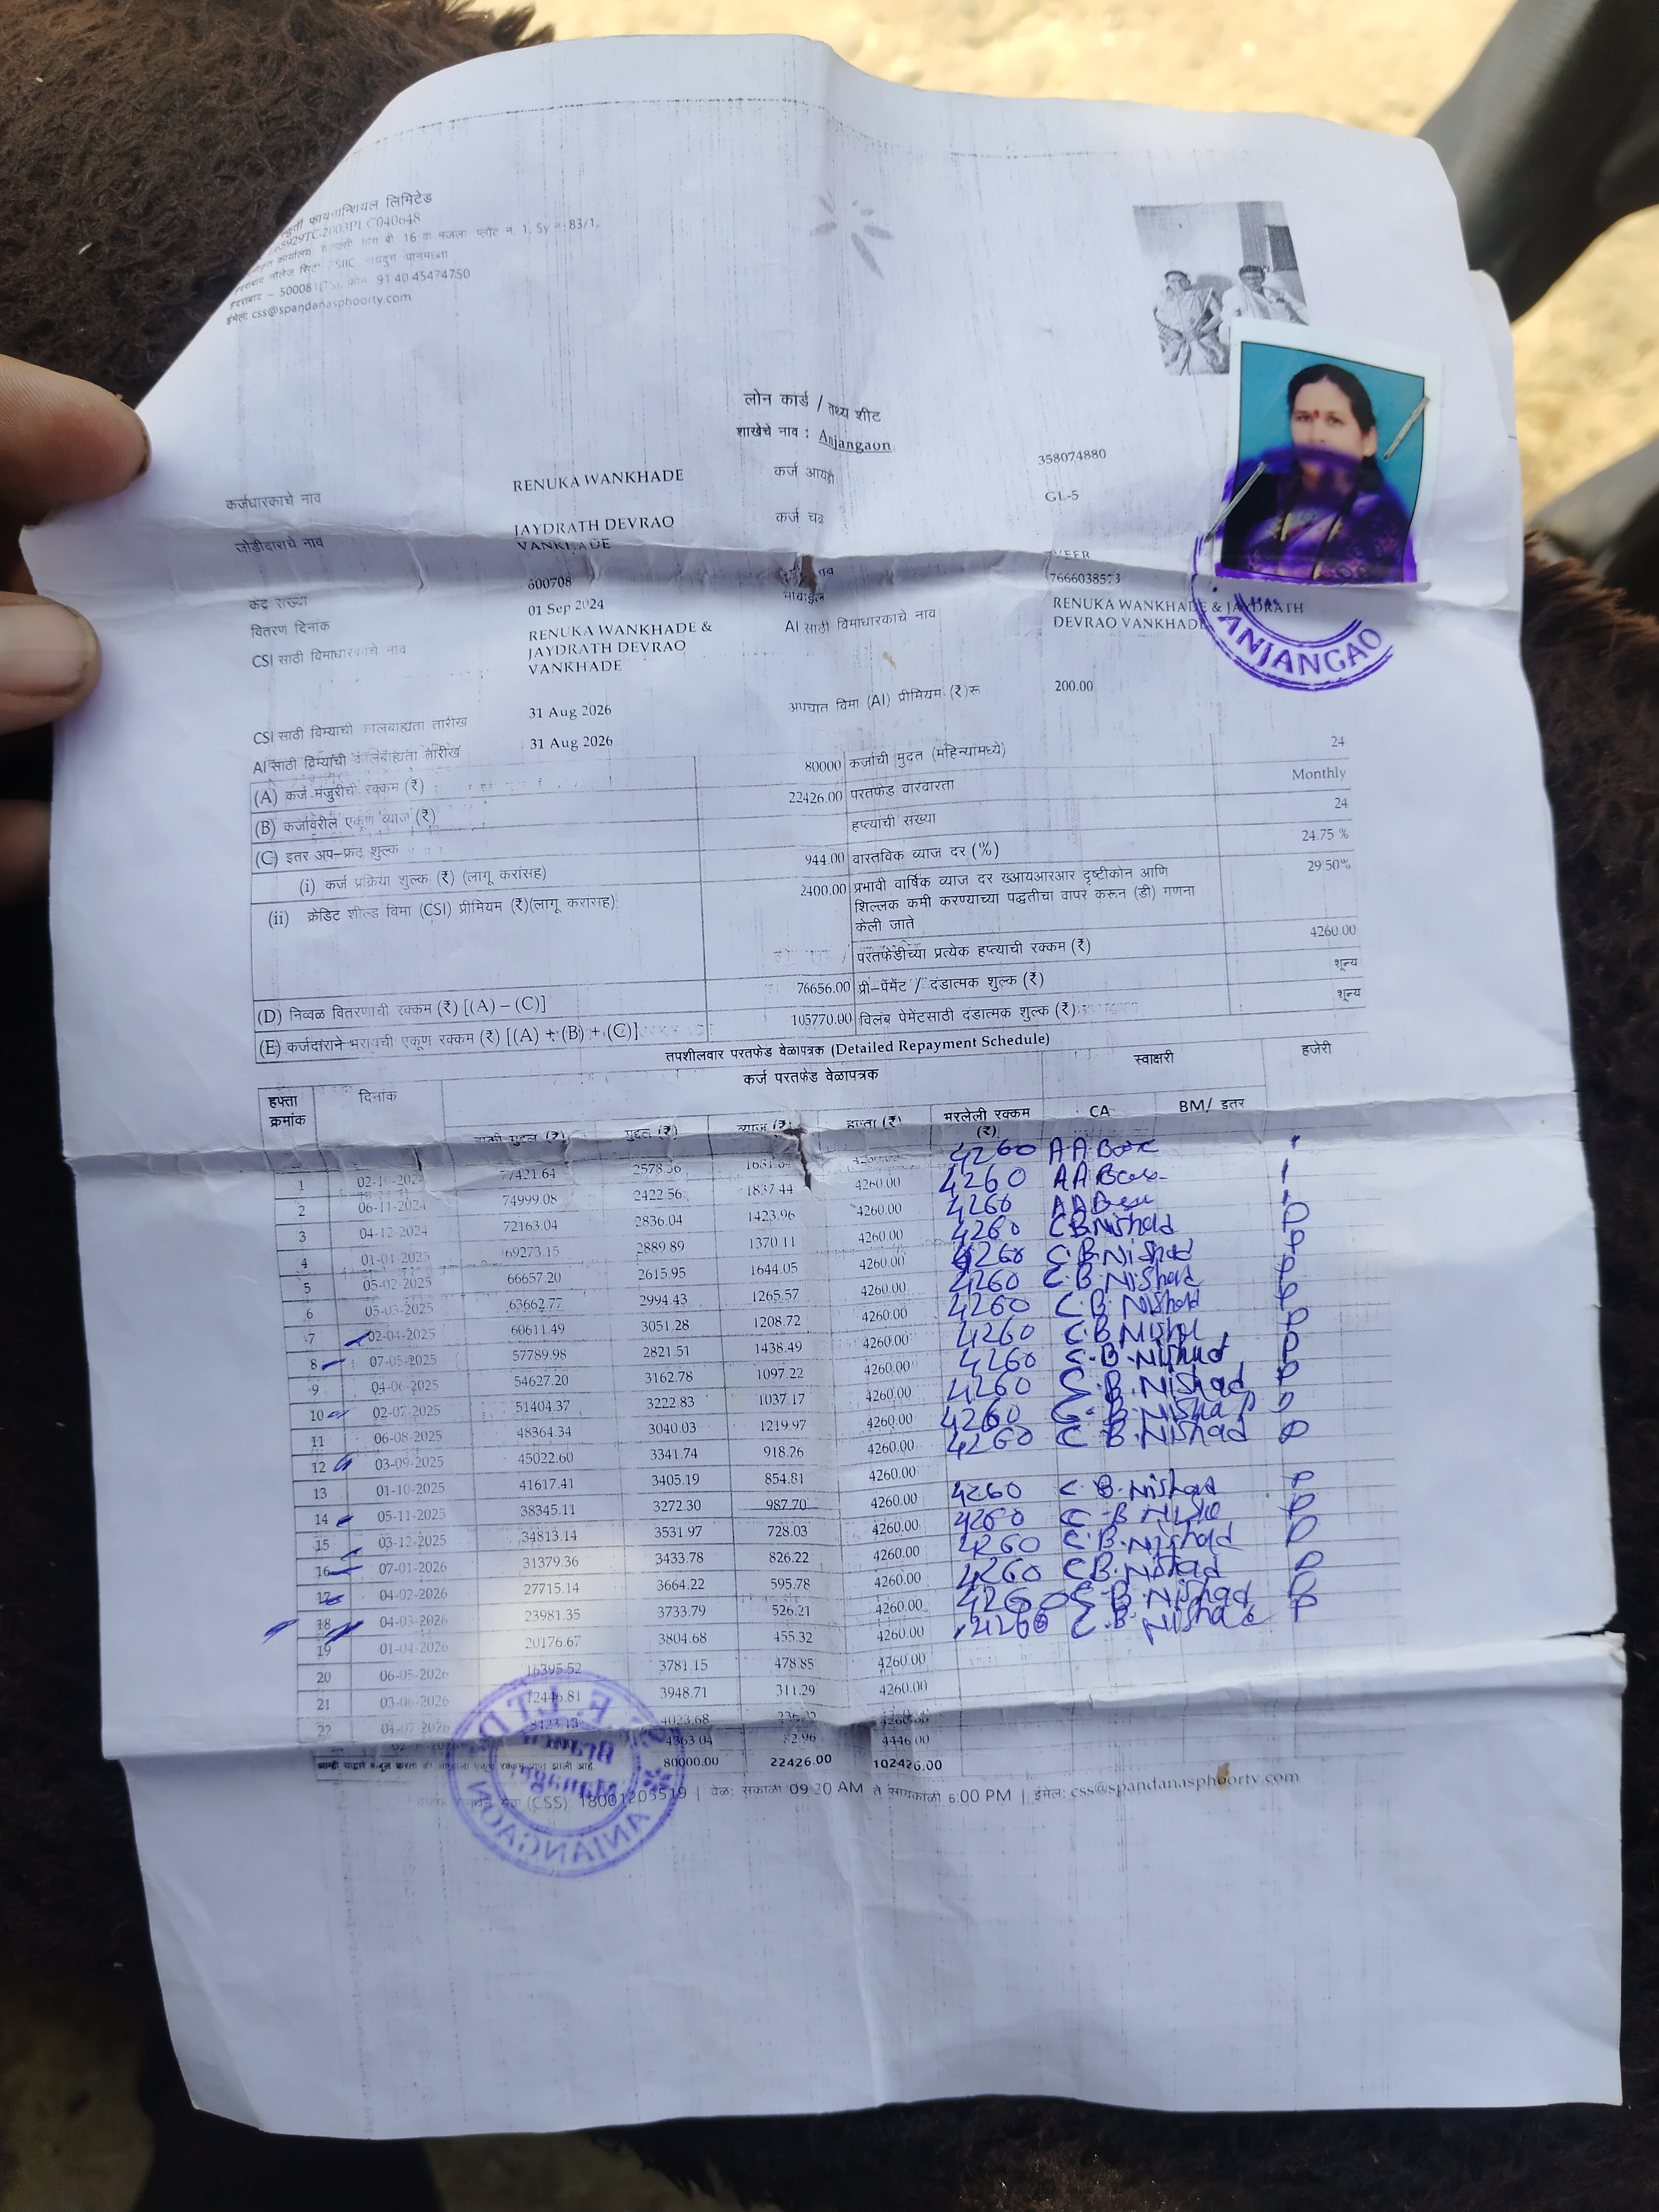 फायनान्शियल लिमिटेड
हैदराबाद – 500081
91 40 45474750
ईमेल: css@spandanasphoorty.com
लोन कार्ड / तथ्य शीट
शाखेचे नाव : Anjangaon
कर्जधारकाचे नाव RENUKA WANKHADE कर्ज आयडी 358074880
जोडीदाराचे नाव JAYDRATH DEVRAO VANKHADE कर्ज चक्र GL-5
केंद्र संख्या 600708
7666038573
वितरण दिनांक 01 Sep 2024
CSI साठी विमाधारकाचे नाव RENUKA WANKHADE & JAYDRATH DEVRAO VANKHADE AI साठी विमाधारकाचे नाव RENUKA WANKHADE & JAYDRATH DEVRAO VANKHADE
ANJANGAO
CSI साठी विम्याची कालबाह्यता तारीख 31 Aug 2026 अपघात विमा (AI) प्रीमियम (₹)रू 200.00
AI साठी विम्याची कालबाह्यता तारीख : 31 Aug 2026
(A) कर्ज मंजुरीची रक्कम (₹) 80000 कर्जाची मुदत (महिन्यांमध्ये) 24
(B) कर्जावरील एकूण व्याज (₹) 22426.00 परतफेड वारंवारता Monthly
(C) इतर अप–फ्रंट शुल्क हप्त्यांची संख्या 24
(i) कर्ज प्रक्रिया शुल्क (₹) (लागू करांसह) 944.00 वास्तविक व्याज दर (%) 24.75 %
(ii) क्रेडिट शील्ड विमा (CSI) प्रीमियम (₹)(लागू करांसह) 2400.00 प्रभावी वार्षिक व्याज दर ख्आयआरआर दृष्टीकोन आणि 29.50%
शिल्लक कमी करण्याच्या पद्धतीचा वापर करून (डी) गणना
केली जाते
परतफेडीच्या प्रत्येक हप्त्याची रक्कम (₹) 4260.00
(D) निव्वळ वितरणाची रक्कम (₹) [(A) – (C)] 76656.00 प्री–पेमेंट / दंडात्मक शुल्क (₹) शून्य
(E) कर्जदाराने भरायची एकूण रक्कम (₹) [(A) + (B) + (C)] 105770.00 विलंब पेमेंटसाठी दंडात्मक शुल्क (₹) शून्य
तपशीलवार परतफेड वेळापत्रक (Detailed Repayment Schedule)
हप्ता क्रमांक दिनांक कर्ज परतफेड वेळापत्रक स्वाक्षरी हजेरी
बाकी मुद्दल (₹) मुद्दल (₹) व्याज (₹) हप्ता (₹) भरलेली रक्कम (₹) CA BM/ इतर
1 77421.64 2578.36 4260
2 06-11-2024 74999.08 2422.56 1837.44 4260.00 4260
3 04-12-2024 72163.04 2836.04 1423.96 4260.00 4260
4 01-01-2025 69273.15 2889.89 1370.11 4260.00 4260 C.B.Nishad P
5 05-02-2025 66657.20 2615.95 1644.05 4260.00 4260 C.B.Nishad P
6 05-03-2025 63662.77 2994.43 1265.57 4260.00 4260 C.B.Nishad P
7 02-04-2025 60611.49 3051.28 1208.72 4260.00 4260 C.B.Nishad P
8 07-05-2025 57789.98 2821.51 1438.49 4260.00 4260 C.B.Nishad P
9 04-06-2025 54627.20 3162.78 1097.22 4260.00 4260 C.B.Nishad P
10 02-07-2025 51404.37 3222.83 1037.17 4260.00 4260 C.B.Nishad P
11 06-08-2025 48364.34 3040.03 1219.97 4260.00 4260 C.B.Nishad P
12 03-09-2025 45022.60 3341.74 918.26 4260.00 4260 C.B.Nishad P
13 01-10-2025 41617.41 3405.19 854.81 4260.00
14 05-11-2025 38345.11 3272.30 987.70 4260.00 4260 C.B.Nishad P
15 03-12-2025 34813.14 3531.97 728.03 4260.00 4260 P
16 07-01-2026 31379.36 3433.78 826.22 4260.00 4260 C.B.Nishad P
17 04-02-2026 27715.14 3664.22 595.78 4260.00 4260 C.B.Nishad P
18 04-03-2026 23981.35 3733.79 526.21 4260.00 4260 C.B.Nishad P
19 01-04-2026 20176.67 3804.68 455.32 4260.00 4260 C.B.Nishad P
20 06-05-2026 16395.52 3781.15 478.85 4260.00
21 03-06-2026 12446.81 3948.71 311.29 4260.00
22
80000.00 22426.00 102426.00
(CSS) 18001205519 | वेळ: सकाळी 09:20 AM ते सायंकाळी 6:00 PM | ईमेल: css@spandanasphoorty.com